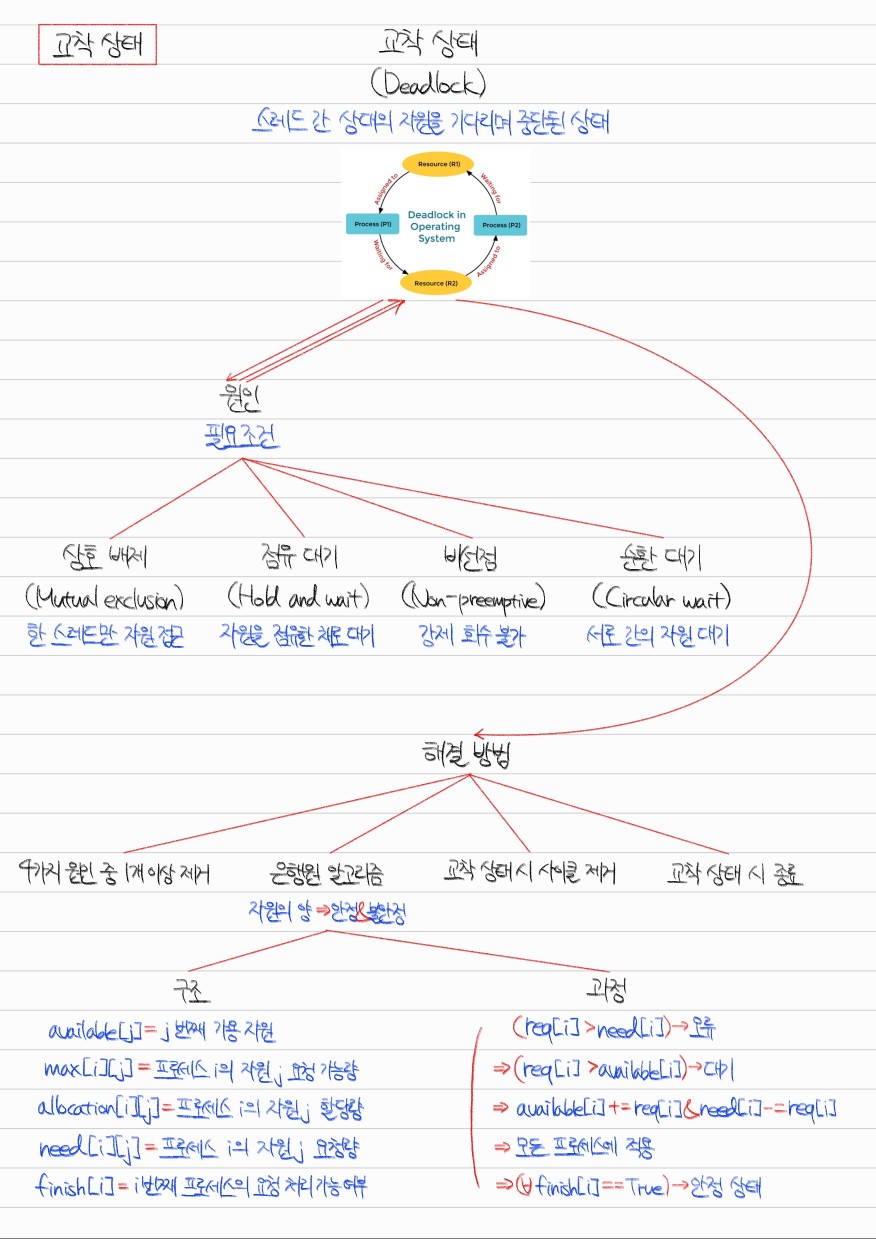 교착 상태
교착 상태
(Deadlock)
스레드 간 상대의 자원을 기다리며 중단된 상태
Resource (R1)
Assigned to
Waiting for
Process (P1)
Deadlock in
Operating
System
Process (P2)
Waiting for
Assigned to
Resource (R2)
원인
필요조건
상호 배제 점유 대기 비선점 순환 대기
(Mutual exclusion) (Hold and wait) (Non-preemptive) (Circular wait)
한 스레드만 자원 접근 자원을 점유한 채로 대기 강제 회수 불가 서로 간의 자원 대기
해결 방법
4가지 원인 중 1개 이상 제거 은행원 알고리즘 교착 상태 시 사이클 제거 교착 상태 시 종료
자원의 양 ⇒ 안정&불안정
구조 과정
available[j] = j 번째 가용 자원
max[i][j] = 프로세스 i의 자원 j 요청 가능량
allocation[i][j] = 프로세스 i의 자원 j 할당량
need[i][j] = 프로세스 i의 자원 j 요청량
finish[i] = i번째 프로세스의 요청 처리 가능 여부
(req[i] > need[i]) → 오류
⇒ (req[i] > available[i]) → 대기
⇒ available[i] += req[i] & need[i] -= req[i]
⇒ 모든 프로세스에 적용
⇒ (∀ finish[i] == True) → 안정 상태